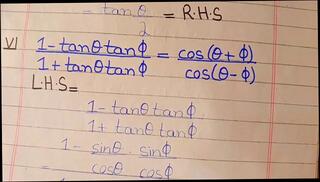 = tanθ/2 = R.H.S
VI) (1-tanθtanΦ)/(1+tanθtanΦ) = cos(θ+Φ)/cos(θ-Φ)
L.H.S=
1-tanθtanΦ
1+tanθtanΦ
1- sinθ . sinΦ
= cosθ cosΦ